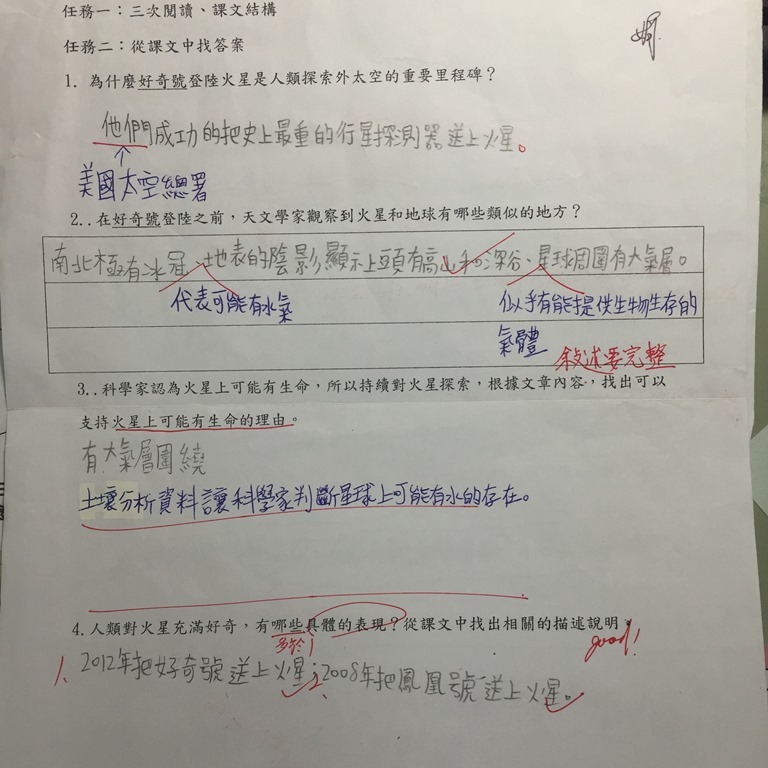 任務一：三次閱讀、課文結構
任務二：從課文中找答案
1. 為什麼好奇號登陸火星是人類探索外太空的重要里程碑？
他們成功的把史上最重的行星探測器送上火星。
美國太空總署
2..在好奇號登陸之前，天文學家觀察到火星和地球有哪些類似的地方？
南北極有冰冠、地表的陰影顯示上頭有高山和深谷、星球周圍有大氣層。
代表可能有水氣
似乎有能提供生物生存的
氣體
敘述要完整
3..科學家認為火星上可能有生命，所以持續對火星探索，根據文章內容，找出可以
支持火星上可能有生命的理由。
有大氣層圍繞
土壤分析資料讓科學家判斷星球上可能有水的存在。
4.人類對火星充滿好奇，有哪些具體的表現？從課文中找出相關的描述說明。
多於1
good!
1、2012年把好奇號送上火星；2、2008年把鳳凰號送上火星。